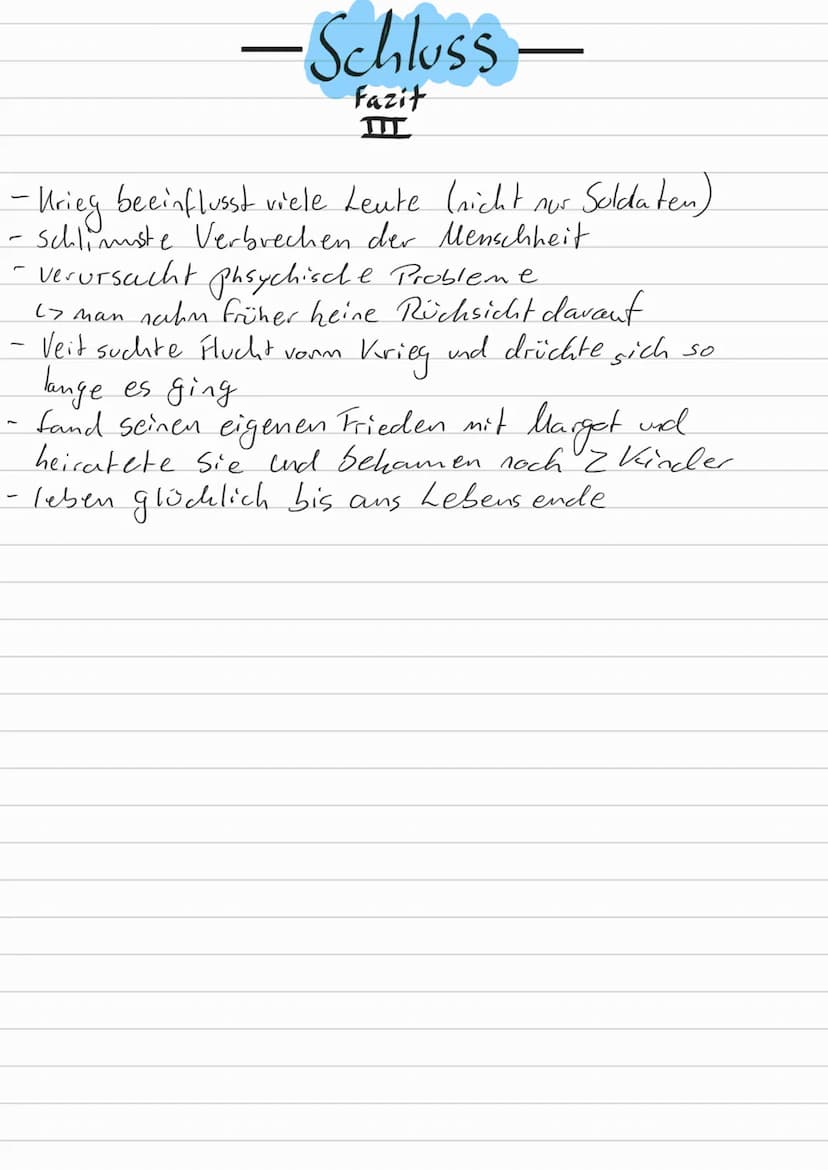 — Schluss —
Fazit
III
- Krieg beeinflusst viele Leute (nicht nur Soldaten)
- schlimmste Verbrechen der Menschheit
- verursacht phsychische Probleme
↳ man nahm früher keine Rücksicht darauf
- Veit suchte Flucht vorm Krieg und drückte sich so
lange es ging
- fand seinen eigenen Frieden mit Margot und
heiratete Sie und bekamen noch 2 Kinder
- leben glücklich bis ans Lebens ende